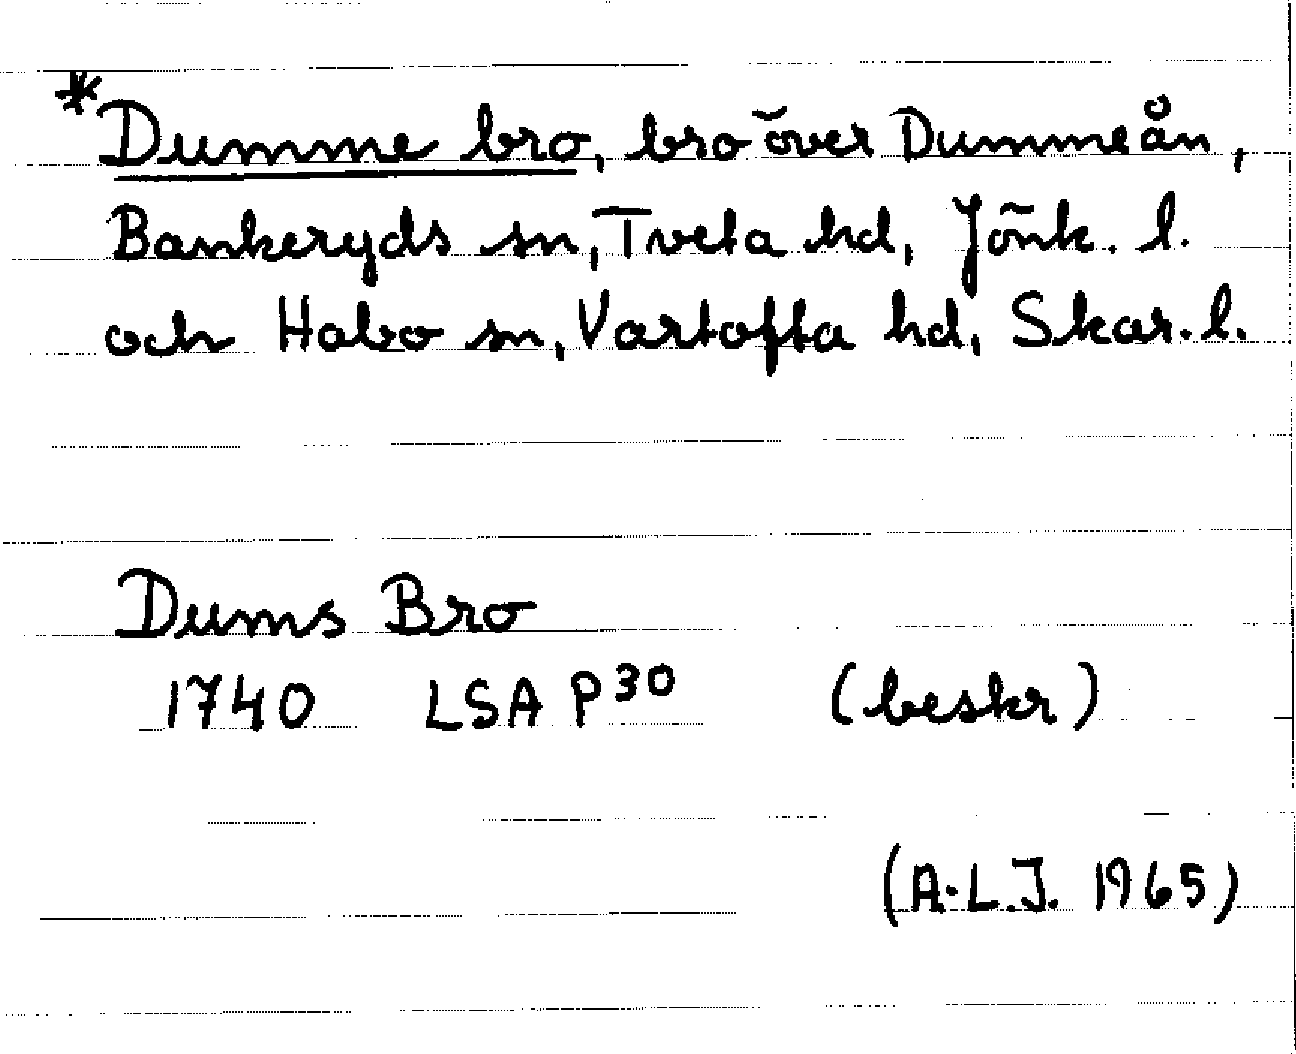 *Dumme bro, bro över Dummeån,
Bankeryds sn, Tveta hd, Jönk. l.
och Habo sn, Vartofta hd, Skar. l.
Dums Bro
1740 LSA P30 (beskr)
(A.L.J. 1965)